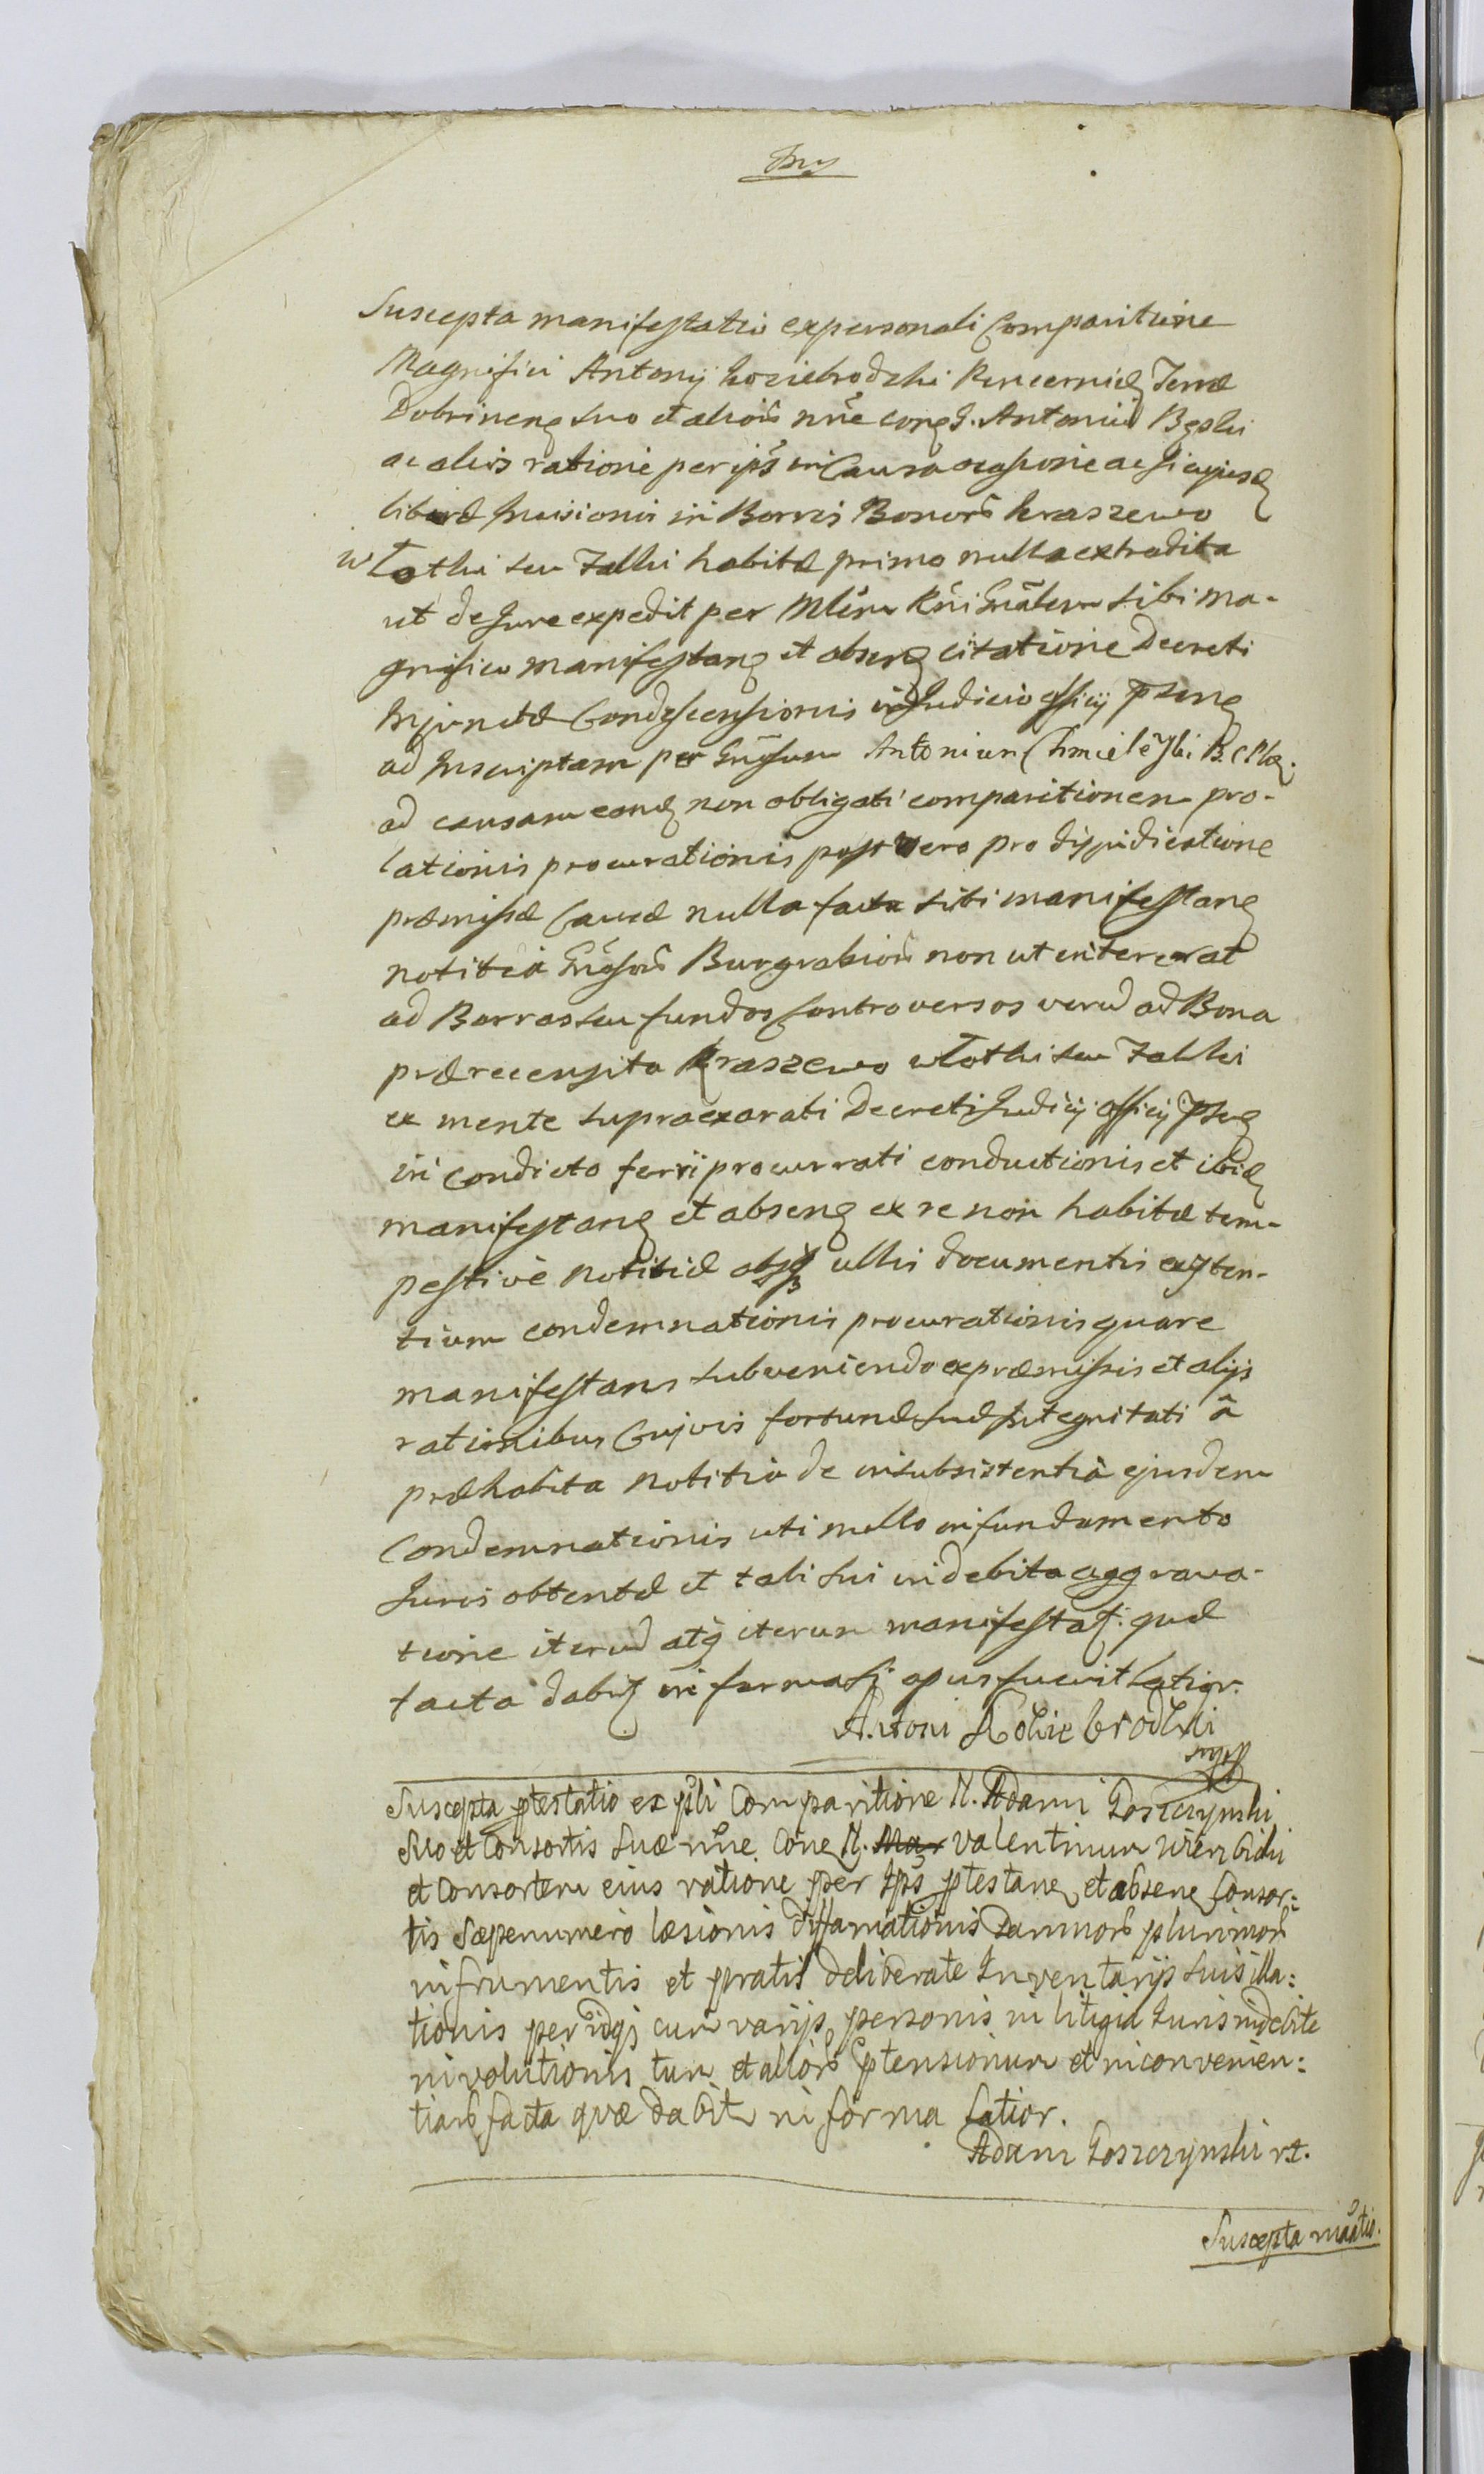 Suscepta manifestatio ex personali Comparitione
Magnifici Antonij Koziebrodzki Pincernæ Terræ
Dobrinen suo et alior̃ nñe con G. Antoniũ Bęski
ac alios ratione per ip̃s in Causa occasione ac si cujusd
liberæ Incisionis in Borris Bonor̃ Kraszewo
wTothi seu Zalki habitæ primo nulla extradita
ut de Jure expedit per Mlem Rñi Gñalem sibi ma-
gnifico manifestan et absen citatione Decreti
Injunctæ Condescensionis in Judicio officij p̃sen
ad Inscriptam per Gñosum Antonium Chmieleski B. C. Plo.
ad causam eand non obligati comparitionem pro-
lationis procurationis post vero pro dijudicatione
præmissæ Causæ nulla facta sibi manifestan
notitia Gñosor̃ Burgrabior̃ non ut intererat
ad Borras seu fundos Controversos verũ ad Bona
prærecensita Kraszewo wTothi seu Zalki
ex mente supraexarati Decreti Judicij officij p̃sen
in Condicto ferri procurrati conductionis et ibid
manifestan et absen ex re non habitæ tem-
pestivè notitiæ absq ullis documentis existen-
tium condemnationis procurationis quare
manifestans subveniendo ex præmissis et alijs
rationibus Cujvis fortunæ suæ Integritati à
præhabita notitia de insubsistentia ejusdem
Condemnationis uti nullo in fundamento
Juris obtentæ et tali sui indebita aggrava-
tione iterũ atq iterum manifestat: quæ
tacta dabit in forma si opus fuerit latior.
Antoni Koziebrodzki
mpp
Suscepta ptestatio ex p̃li Comparitione M. Adami Goszczynski
suo et Consortis suæ nñe Con M. Valentinum Wierzbicki
et Consortem eius ratione per Ip̃s ptestan et absen Consor:
tis sæpenumero læsionis diffamationis Damnor̃ plurimor̃
in frumentis et pratis deliberate Inventarijs suis illa:
tionis per idq cum varijs personis in litigia Iuris indebite
involutionis tum et alior̃ p̃tensionum et inconvenien:
tiar̃ facta quæ dabit in forma latior.
Adam Goszczynski
Suscepta mãtio.